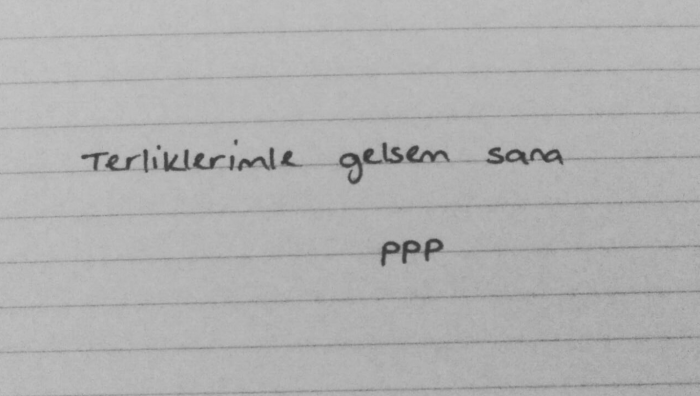 Terliklerimle gelsem sana
PPP